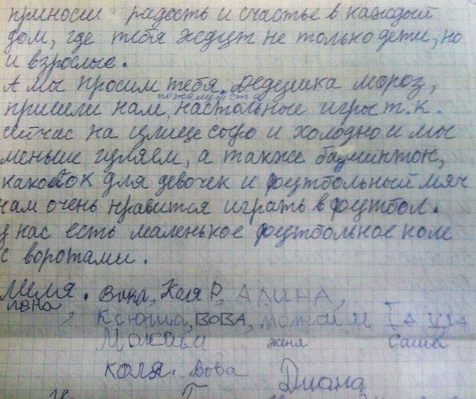 приносиш радость и счастье в каждый
дом, где тебя ждут не только дети, но
и взрослые.
А мы просим тебя, дедушка мороз,
пожалуйста
пришли нам, настольные игры т.к.
сейчас на улице сыро и холодно и мы
меньше гуляем, а также бадминтон,
для девочек и футбольный мяч
нам очень нравится играть в футбол.
У нас есть маленькое футбольное поле
с воротами.
Вика, Коля Р, АЛИНА,
лена,
Ксюша, ВОВА,
Максим женя Саша
КОЛЯ. Вова Диана